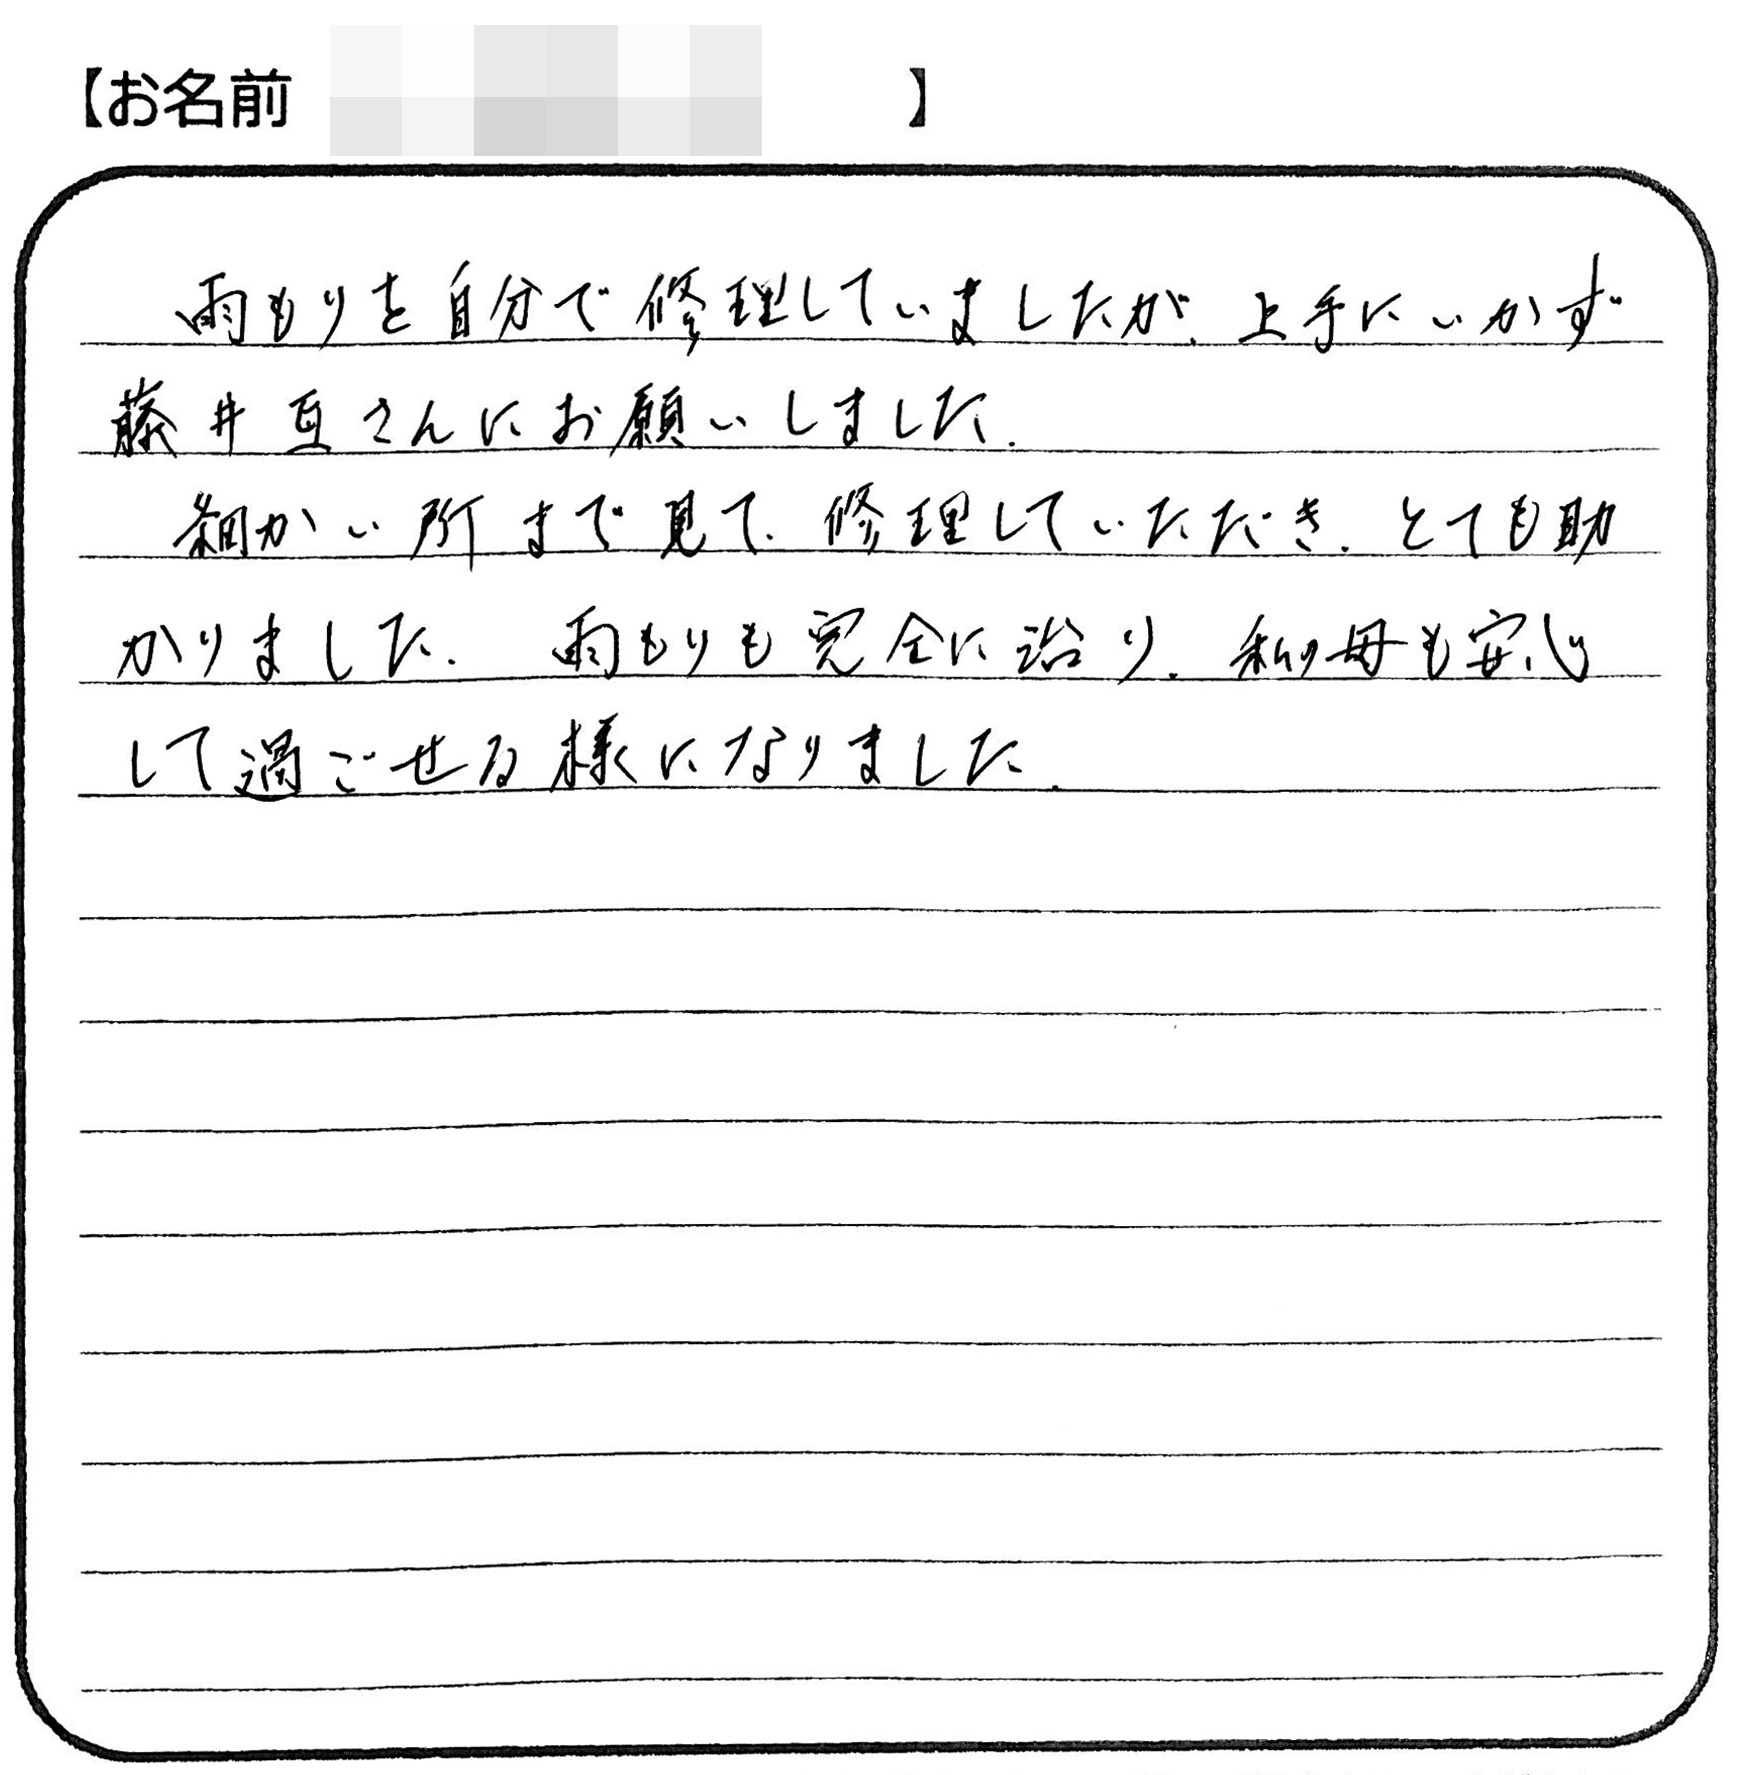 【お名前 】
雨もりを自分で修理していましたが、上手にいかず
藤井亙さんにお願いしました.
細かい所まで見て、修理していただき、とても助
かりました. 雨もりも完全に治り、私の母も安心
して過ごせる様になりました.